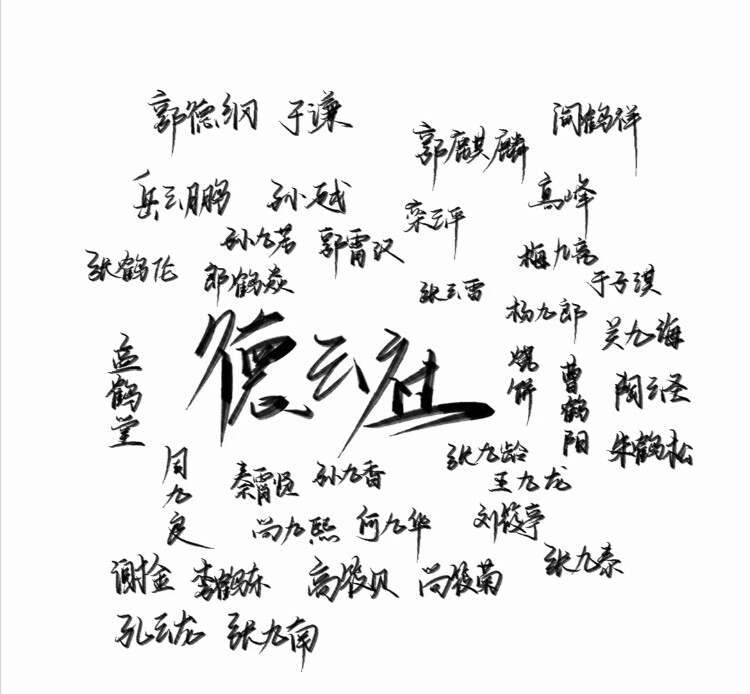 郭德纲 于谦
郭麒麟
阎鹤祥
岳云鹏 孙越
栾云平
高峰
孙九芳 郭霄汉
梅九亮
张鹤伦 郎鹤焱
张云雷
于子淇
杨九郎
吴九海
德云社
孟鹤堂
烧饼
曹鹤阳
陶云圣
朱鹤松
周九良
秦霄贤 孙九香
张九龄
王九龙
尚九熙 何九华
刘筱亭
张九泰
谢金 李鹤东 高筱贝 尚筱菊
孔云龙 张九南